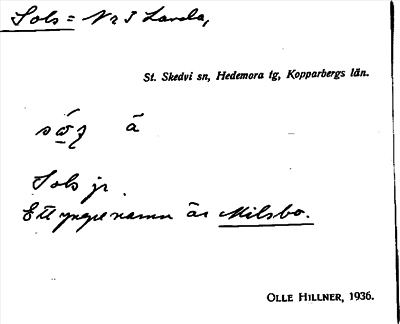 Sols = Nr 3 Landa,
St. Skedvi sn, Hedemora tg, Kopparbergs län.
å
Sols jr.
Ett yngre namn är Milsbo.
OLLE HILLNER, 1936.